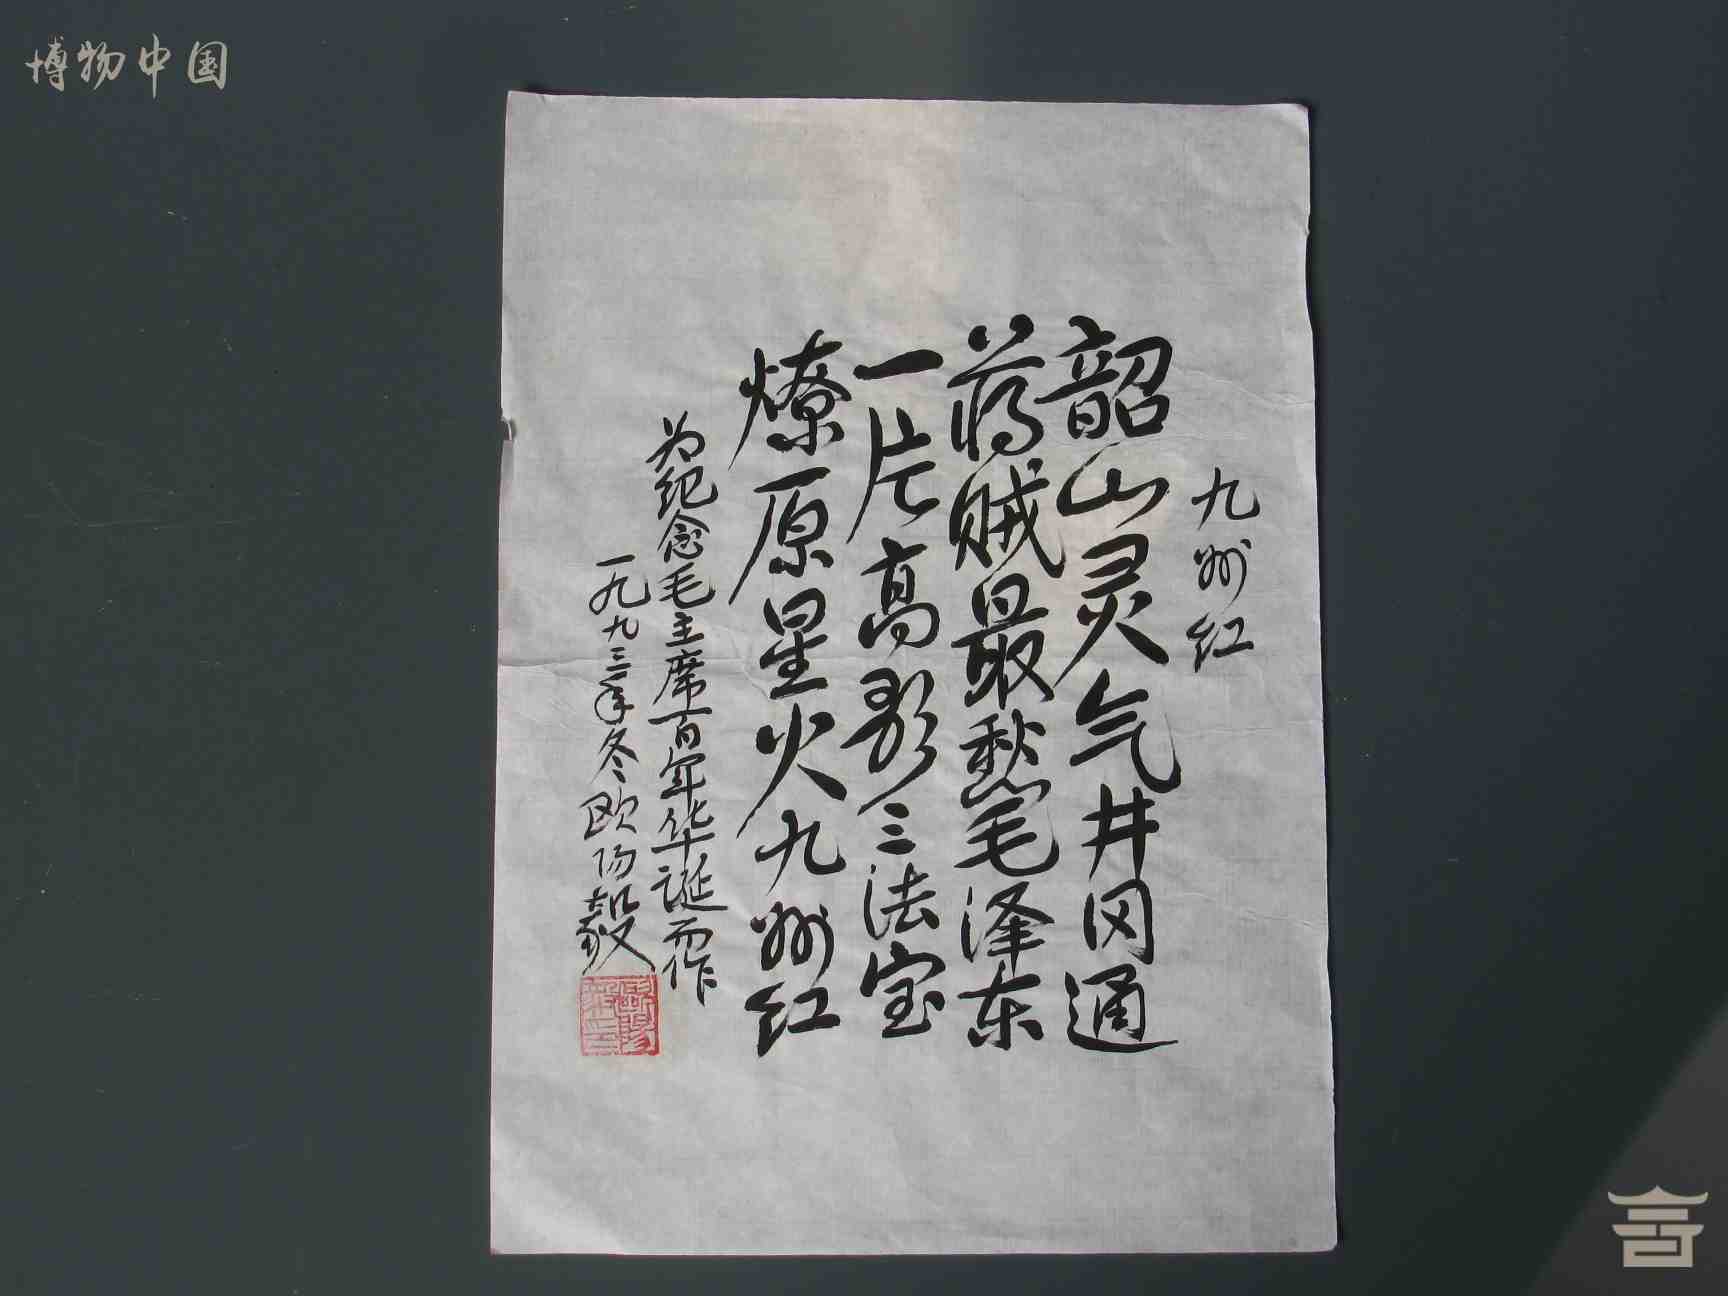 博物中国
九州红
韶山灵气井冈通
蒋贼最愁毛泽东
一片高歌三法宝
燎原星火九州红
为纪念毛主席百年华诞而作
一九九三年冬欧阳毅